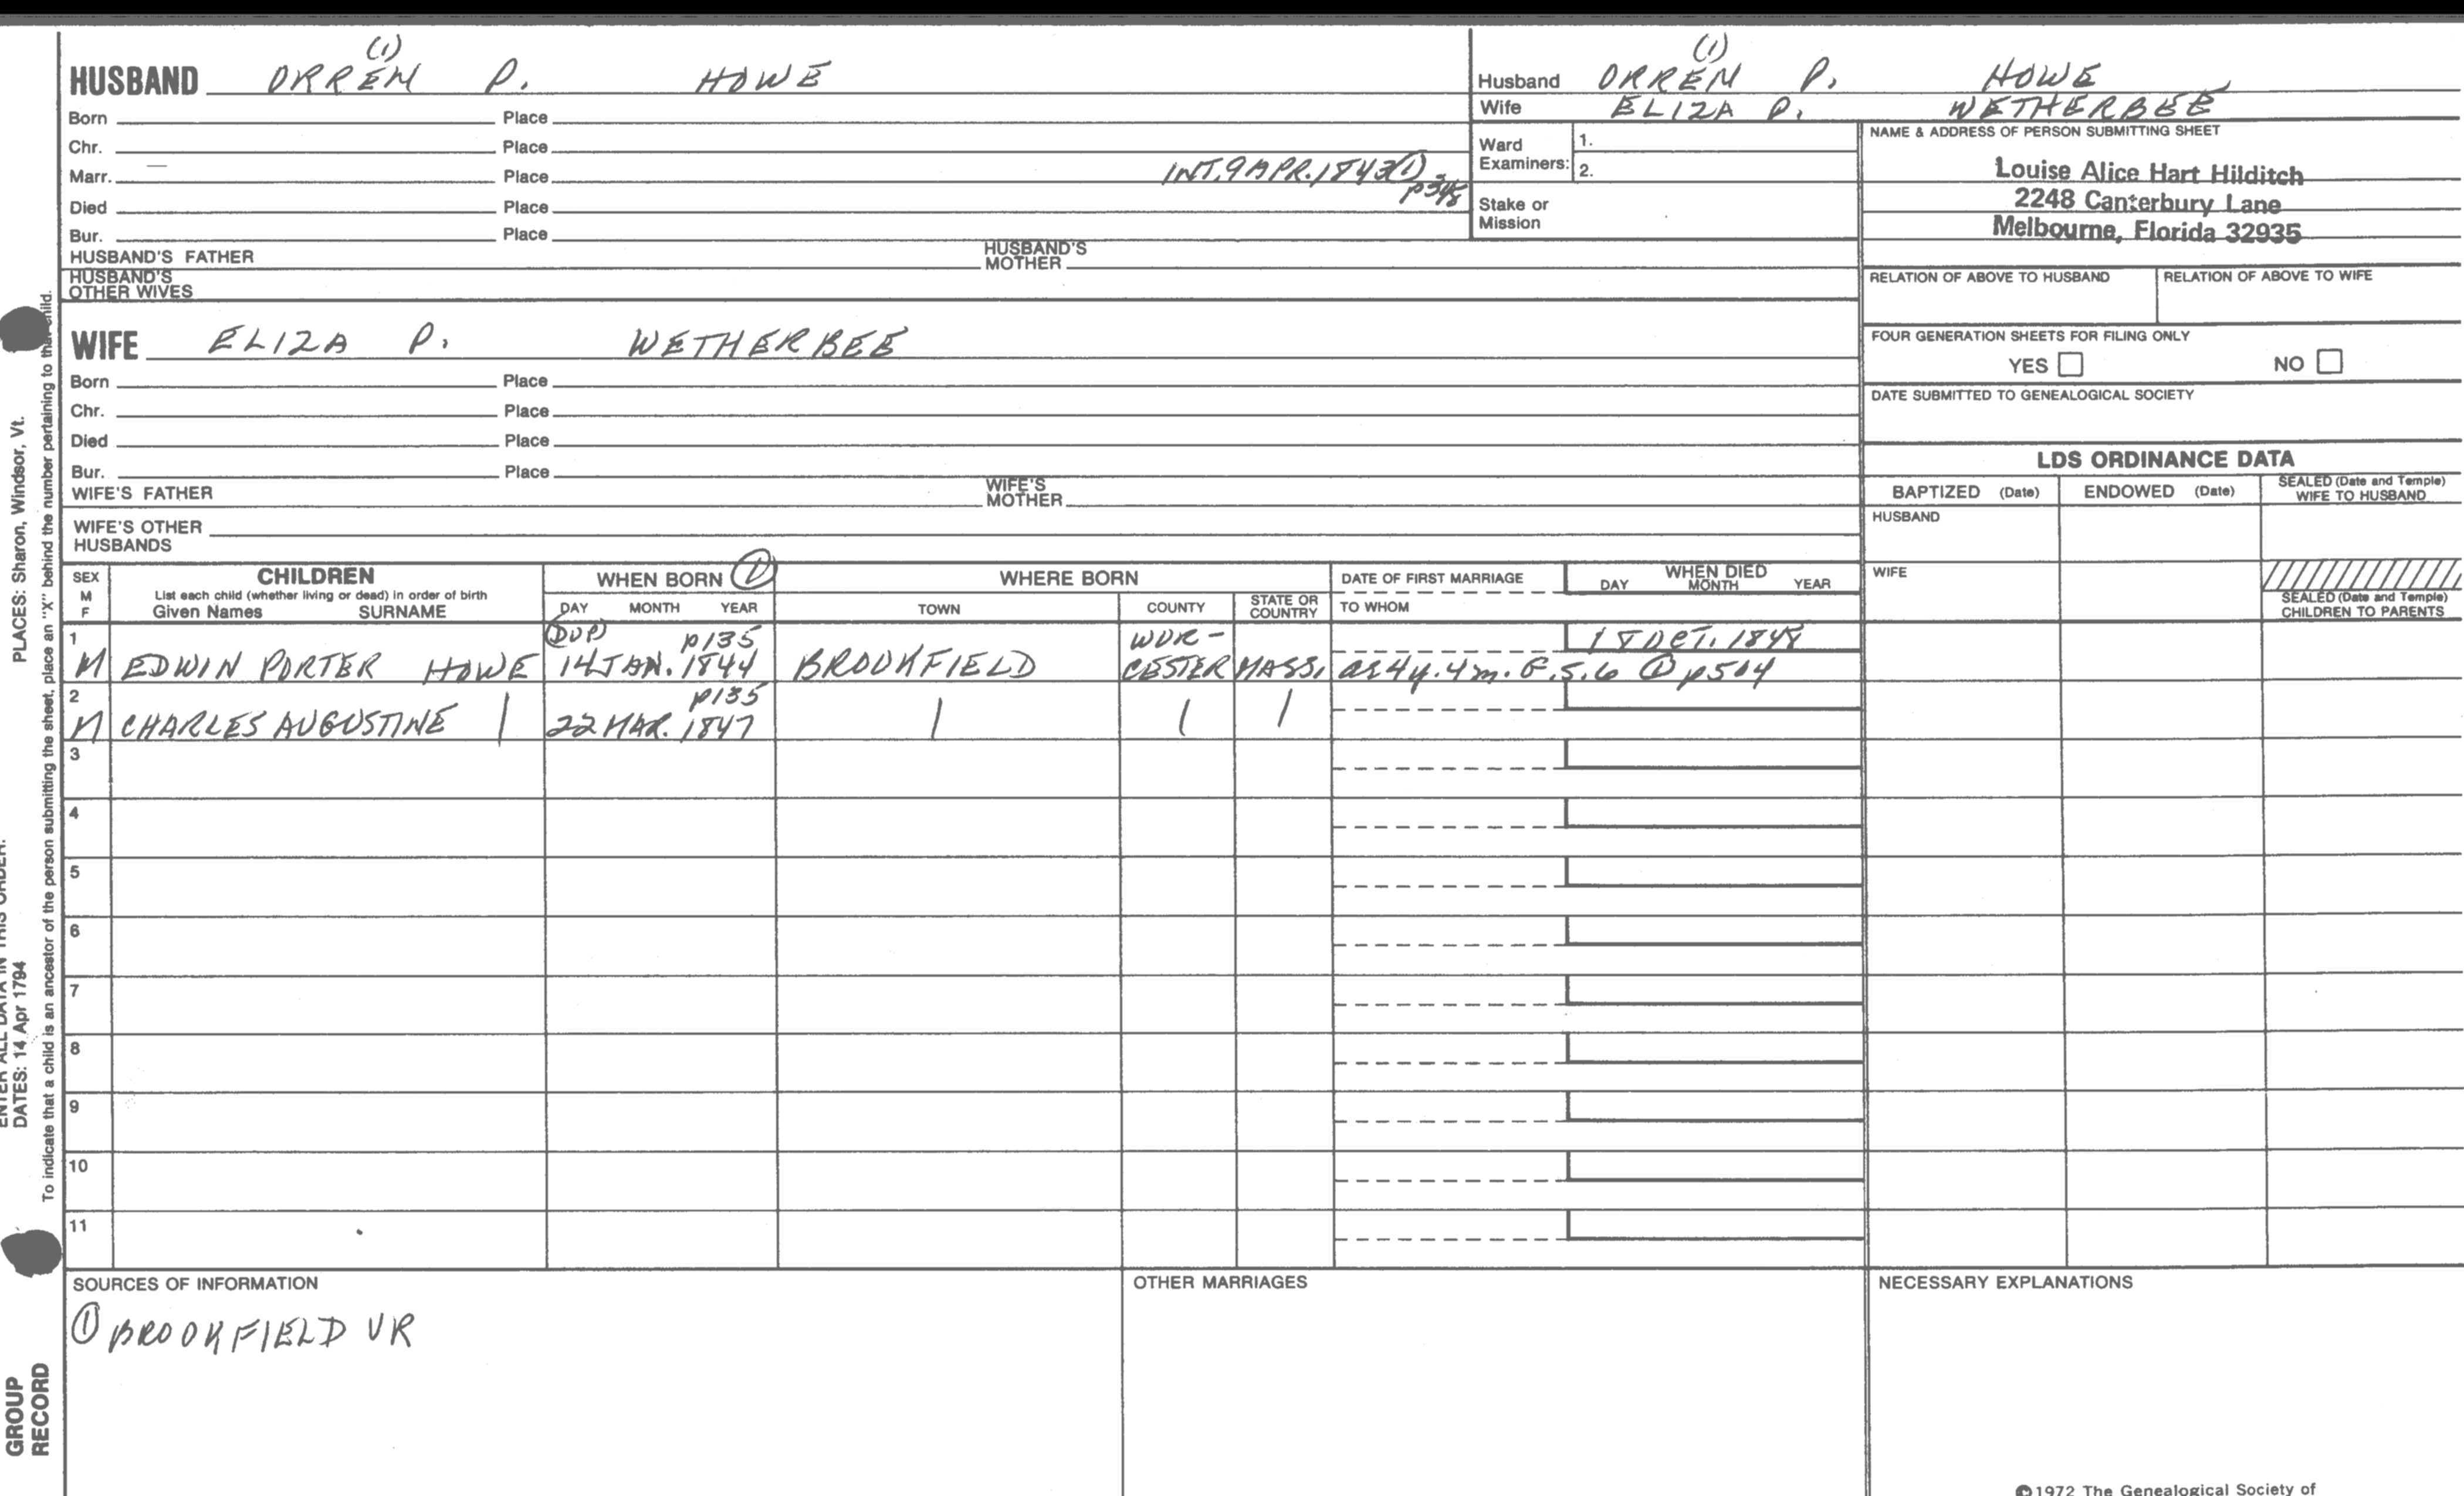 (1)
HUSBAND ORREN P. HOWE
Born Place
Chr. Place
Marr. Place INT. 9 APR. 1843 (1)
Died Place
Bur. Place
HUSBAND'S FATHER HUSBAND'S MOTHER
HUSBAND'S OTHER WIVES
WIFE ELIZA P. WETHERBEE
Born Place
Chr. Place
Died Place
Bur. Place
WIFE'S FATHER WIFE'S MOTHER
WIFE'S OTHER HUSBANDS
(1)
Husband ORREN P. HOWE
Wife ELIZA P. WETHERBEE
Ward Examiners: 1.
2.
Stake or Mission
NAME & ADDRESS OF PERSON SUBMITTING SHEET
Louise Alice Hart Hilditch
2248 Canterbury Lane
Melbourne, Florida 32935
RELATION OF ABOVE TO HUSBAND RELATION OF ABOVE TO WIFE
FOUR GENERATION SHEETS FOR FILING ONLY
YES NO
DATE SUBMITTED TO GENEALOGICAL SOCIETY
LDS ORDINANCE DATA
BAPTIZED (Date) ENDOWED (Date) SEALED (Date and Temple) WIFE TO HUSBAND
HUSBAND
WIFE
SEALED (Date and Temple) CHILDREN TO PARENTS
SEX M F
CHILDREN
List each child (whether living or dead) in order of birth
Given Names SURNAME
WHEN BORN ①
DAY MONTH YEAR
WHERE BORN
TOWN COUNTY STATE OR COUNTRY
DATE OF FIRST MARRIAGE
TO WHOM
WHEN DIED
DAY MONTH YEAR
1 (DUP) p135 WOR- 18 OCT. 1848
M EDWIN PORTER HOWE 14 JAN. 1844 BROOKFIELD CESTER MASS. a 4y. 4m. G.S.6 ① p504
2 p135
M CHARLES AUGUSTINE | 22 MAR. 1847 | | |
3
4
5
6
7
8
9
10
11
SOURCES OF INFORMATION
① BROOKFIELD VR
OTHER MARRIAGES
NECESSARY EXPLANATIONS
©1972 The Genealogical Society of
PLACES: Sharon, Windsor, Vt.
ENTER ALL DATA IN THIS ORDER:
DATES: 14 Apr 1794
To indicate that a child is an ancestor of the person submitting the sheet, place an "X" behind the number pertaining to that child.
GROUP
RECORD